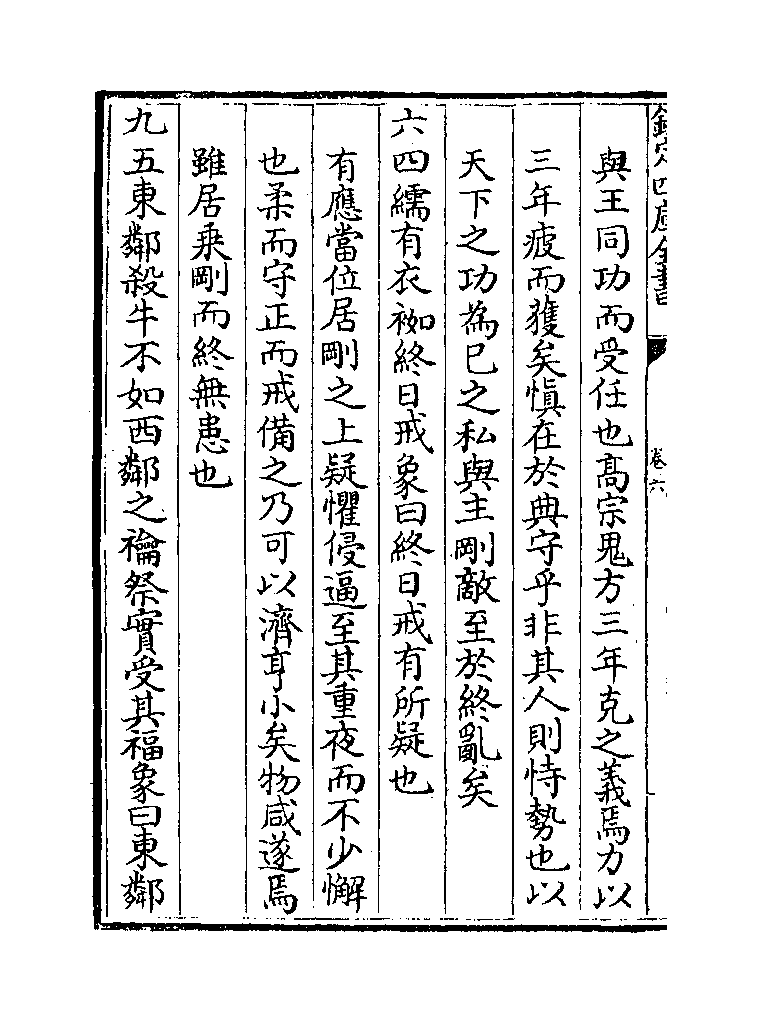 欽定四庫全書
卷六
與王同功而受任也髙宗鬼方三年克之義焉力以
三年疲而獲矣慎在於典守乎非其人則恃勢也以
天下之功為已之私與主剛敵至於終亂矣
六四繻有衣袽終日戒象曰終日戒有所疑也
有應當位居剛之上疑懼侵逼至其重夜而不少懈
也柔而守正而戒備之乃可以濟亨小矣物咸遂焉
雖居乗剛而終無患也
九五東鄰殺牛不如西鄰之禴祭實受其福象曰東鄰